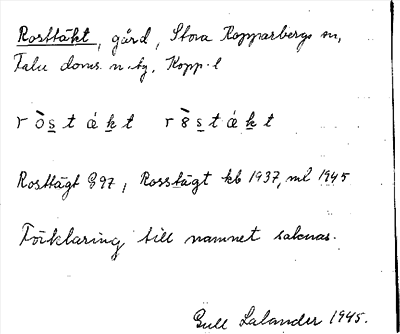 Rosttäkt, gård, Stora Kopparbergs sn,
Falu doms. n. tg, Kopp. l
r ò s t ǻ k t r ò s t ǻ k t
Rosttägt G97, Rosstägt kb 1937, ml 1945
Förklaring till namnet saknas.
Gull Lalander 1945.